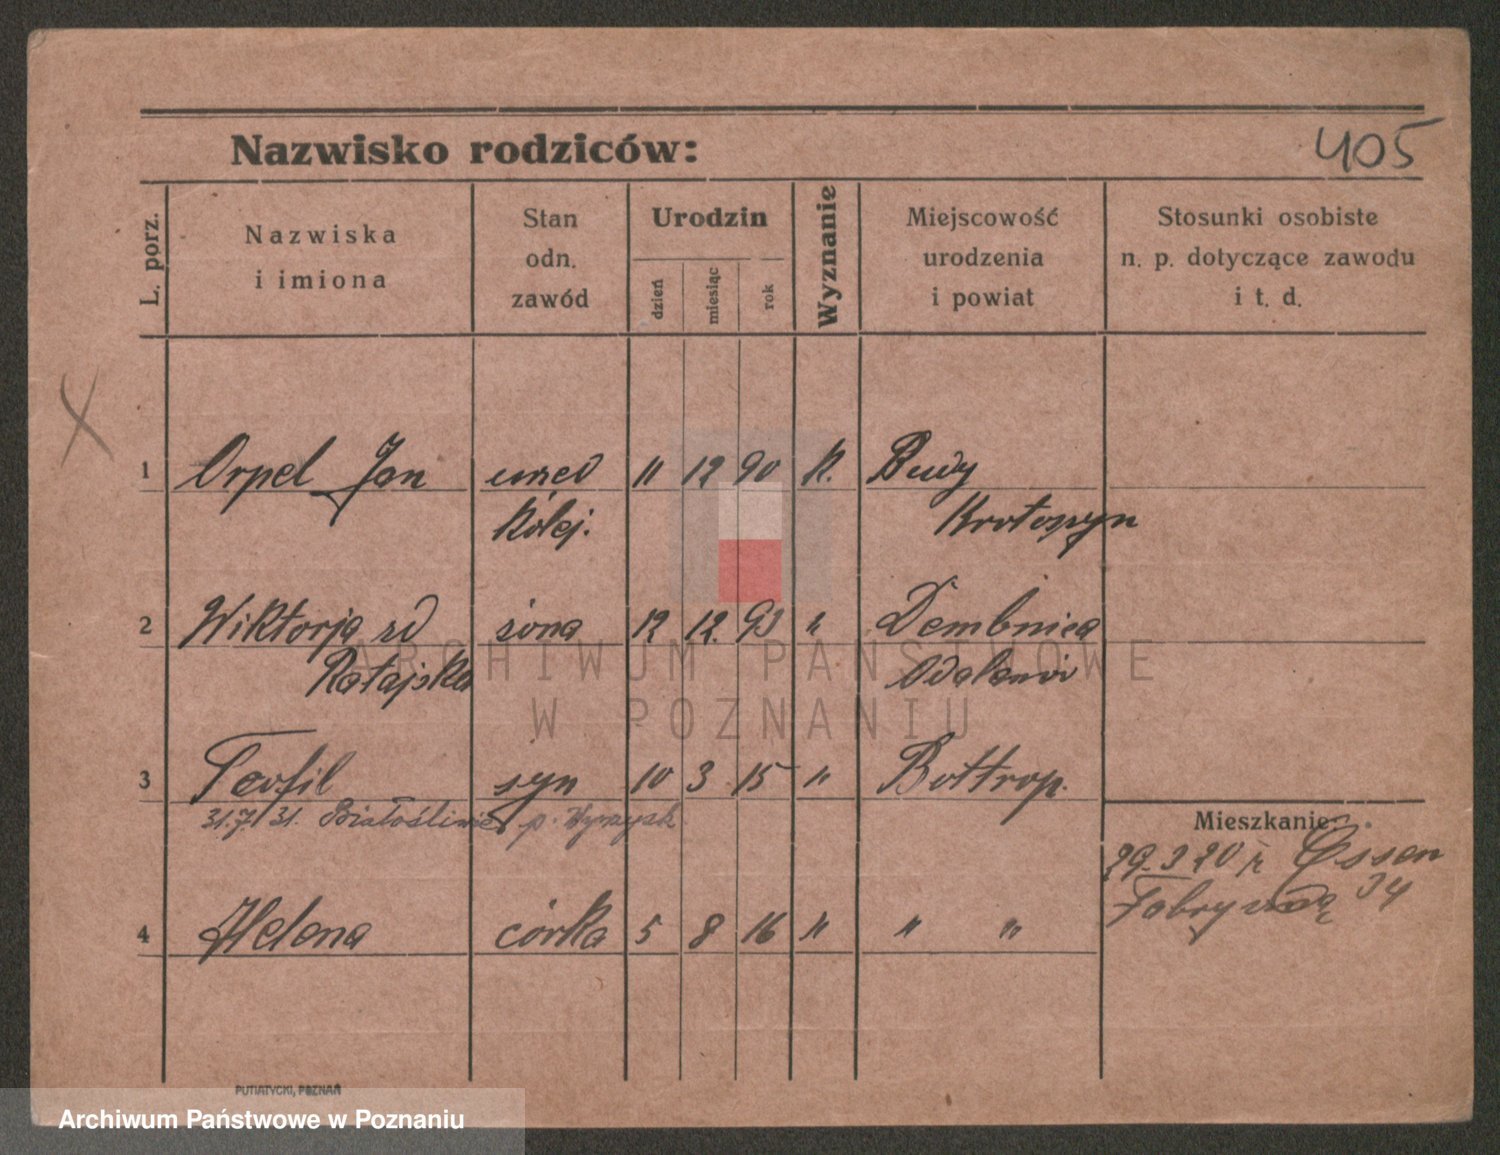 Nazwisko rodziców:
405
L. porz.
Nazwiska
i imiona
Stan
odn.
zawód
Urodzin
dzień
miesiąc
rok
Wyznanie
Miejscowość
urodzenia
i powiat
Stosunki osobiste
n. p. dotyczące zawodu
i t. d.
X
1 Orpel Jan urzed 11 12 90 K. Budy
Kolej. Krotoszyn
2 Wiktorja zd żona 12 12. 93 " Dembnica
Ratajska Odolanów
3 Teofil syn 10 3 15 " Bottrop.
31.7.31. Białośliwie p. Wyrzysk
Mieszkanie:
29.3 20 r. Essen
34
4 Helena córka 5 8 16 " " "
PUTIATYCKI, POZNAŃ
ARCHIWUM PAŃSTWOWE
W POZNANIU
Archiwum Państwowe w Poznaniu